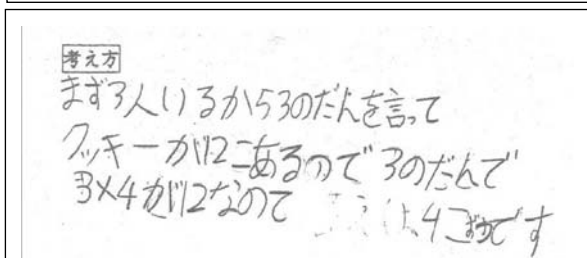 考え方
まず3人いるから3のだんを言って
クッキーが12こあるので3のだんで
3×4が12なので
4こずつです